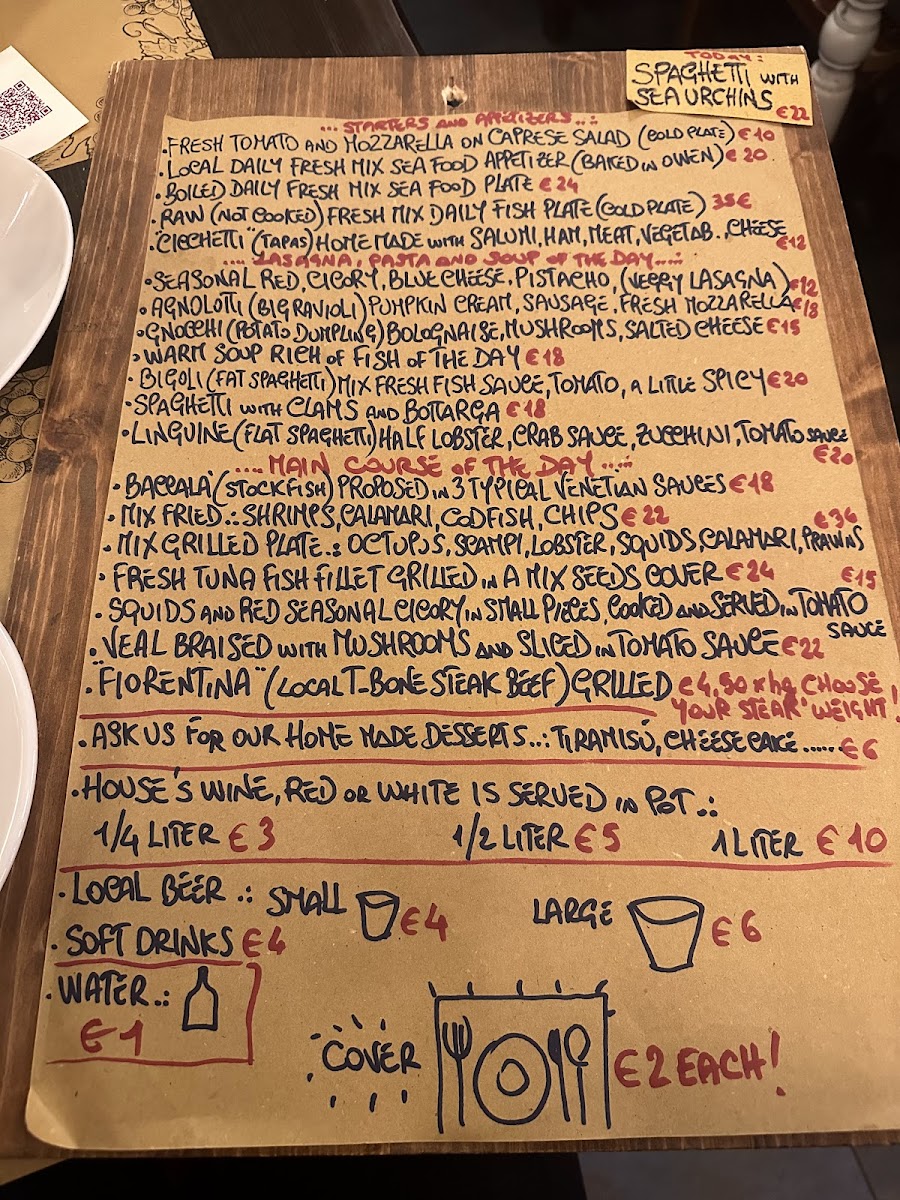 TODAY:
SPAGHETTI WITH
SEA URCHINS
€22
... STARTERS AND APPETIZERS..:
.FRESH TOMATO AND MOZZARELLA ON CAPRESE SALAD (COLD PLATE) €10
.LOCAL DAILY FRESH MIX SEA FOOD APPETIZER (BAKED IN OWEN) €20
.BOILED DAILY FRESH MIX SEA FOOD PLATE €24
.RAW (NOT COOKED) FRESH MIX DAILY FISH PLATE (COLD PLATE) 35€
."CICCHETTI" (TAPAS) HOME MADE WITH SALUMI, HAM, MEAT, VEGETAB.., CHEESE €12
.... LASAGNA, PASTA AND SOUP OF THE DAY....:
.SEASONAL RED, CICORY, BLUE CHEESE. PISTACHO, (VEGGY LASAGNA) €12
.AGNOLOTTI (BIG RAVIOLI) PUMPKIN CREAM, SAUSAGE. FRESH MOZZARELLA €18
.GNOCCHI (POTATO DUMPLING) BOLOGNAISE, MUSHROOMS, SALTED CHEESE €15
.WARM SOUP RICH OF FISH OF THE DAY €18
.BIGOLI (FAT SPAGHETTI) MIX FRESH FISH SAUCE, TOMATO, A LITTLE SPICY €20
.SPAGHETTI WITH CLAMS AND BOTTARGA €18
.LINGUINE (FLAT SPAGHETTI) HALF LOBSTER, CRAB SAUCE, ZUCCHINI, TOMATO SAUCE
€20
.... MAIN COURSE OF THE DAY ....:
.BACCALA' (STOCKFISH) PROPOSED IN 3 TYPICAL VENETIAN SAUCES €18
.MIX FRIED..: SHRIMPS, CALAMARI, CODFISH, CHIPS €22
€36
.MIX GRILLED PLATE.: OCTUPUS, SCAMPI, LOBSTER, SQUIDS, CALAMARI, PRAWNS
.FRESH TUNA FISH FILLET GRILLED IN A MIX SEEDS COVER €24
€15
.SQUIDS AND RED SEASONAL CICORY IN SMALL PIECES, COOKED AND SERVED IN TOMATO
SAUCE
.VEAL BRAISED WITH MUSHROOMS AND SLICED IN TOMATO SAUCE €22
."FIORENTINA" (LOCAL T-BONE STEAK BEEF) GRILLED €4,50 x hg CHOOSE
YOUR STEAK' WEIGHT!
.ASK US FOR OUR HOME MADE DESSERTS..: TIRAMISÚ, CHEESE CAKE ..... €6
.HOUSE'S WINE, RED OR WHITE IS SERVED IN POT.:
1/4 LITER €3 1/2 LITER €5 1 LITER €10
.LOCAL BEER.: SMALL €4 LARGE €6
.SOFT DRINKS €4
.WATER..:
€1
COVER €2 EACH!